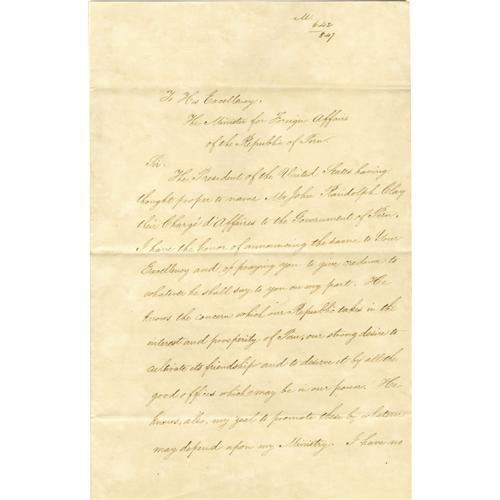 M.
642
847
To His Excellency,
The Minister for Foreign Affairs
of the Republic of Peru.
Sir.
The President of the United States having
thought proper to name Mr John Randolph Clay
their Chargé d'Affaires to the Government of Peru.
I have the honor of announcing the same to Your
Excellency and of praying you to give credence to
whatever he shall say to you on my part. He
knows the concern which our Republic takes in the
interest and prosperity of Peru, our strong desire to
cultivate its friendship and to deserve it by all the
good offices which may be in our power. He
knows, also, my zeal to promote these by whatever
may depend upon my Ministry. I have no